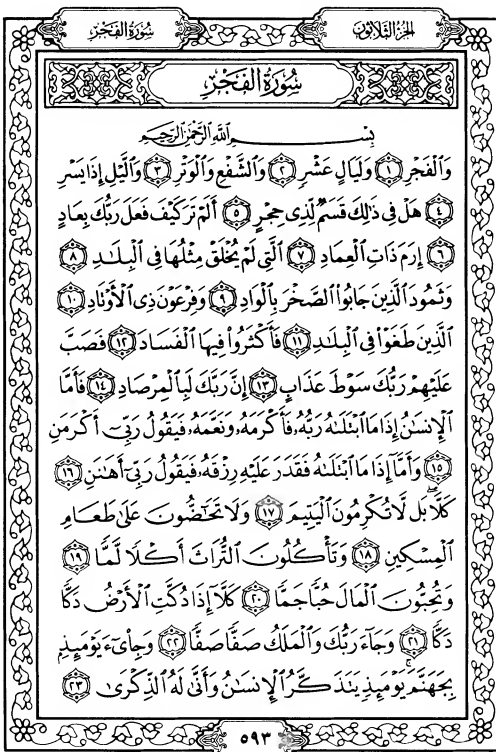 الجزء الثلاثون
سورة الفجر
سورة الفجر
بِسْمِ اللَّهِ الرَّحْمَٰنِ الرَّحِيمِ
وَالْفَجْرِ ١ وَلَيَالٍ عَشْرٍ ٢ وَالشَّفْعِ وَالْوَتْرِ ٣ وَاللَّيْلِ إِذَا يَسْرِ
٤ هَلْ فِي ذَٰلِكَ قَسَمٌ لِّذِي حِجْرٍ ٥ أَلَمْ تَرَ كَيْفَ فَعَلَ رَبُّكَ بِعَادٍ
٦ إِرَمَ ذَاتِ الْعِمَادِ ٧ الَّتِي لَمْ يُخْلَقْ مِثْلُهَا فِي الْبِلَادِ ٨
وَثَمُودَ الَّذِينَ جَابُوا الصَّخْرَ بِالْوَادِ ٩ وَفِرْعَوْنَ ذِي الْأَوْتَادِ ١٠
الَّذِينَ طَغَوْا فِي الْبِلَادِ ١١ فَأَكْثَرُوا فِيهَا الْفَسَادَ ١٢ فَصَبَّ
عَلَيْهِمْ رَبُّكَ سَوْطَ عَذَابٍ ١٣ إِنَّ رَبَّكَ لَبِالْمِرْصَادِ ١٤ فَأَمَّا
الْإِنسَٰنُ إِذَا مَا ابْتَلَىٰهُ رَبُّهُ فَأَكْرَمَهُ وَنَعَّمَهُ فَيَقُولُ رَبِّي أَكْرَمَنِ
١٥ وَأَمَّا إِذَا مَا ابْتَلَىٰهُ فَقَدَرَ عَلَيْهِ رِزْقَهُ فَيَقُولُ رَبِّي أَهَٰنَنِ ١٦
كَلَّا بَل لَّا تُكْرِمُونَ الْيَتِيمَ ١٧ وَلَا تَحَٰٓضُّونَ عَلَىٰ طَعَامِ
الْمِسْكِينِ ١٨ وَتَأْكُلُونَ التُّرَاثَ أَكْلًا لَّمًّا ١٩
وَتُحِبُّونَ الْمَالَ حُبًّا جَمًّا ٢٠ كَلَّا إِذَا دُكَّتِ الْأَرْضُ دَكًّا
دَكًّا ٢١ وَجَاءَ رَبُّكَ وَالْمَلَكُ صَفًّا صَفًّا ٢٢ وَجِايءَ يَوْمَئِذٍ
بِجَهَنَّمَ يَوْمَئِذٍ يَتَذَكَّرُ الْإِنسَٰنُ وَأَنَّىٰ لَهُ الذِّكْرَىٰ ٢٣
٥٩٣